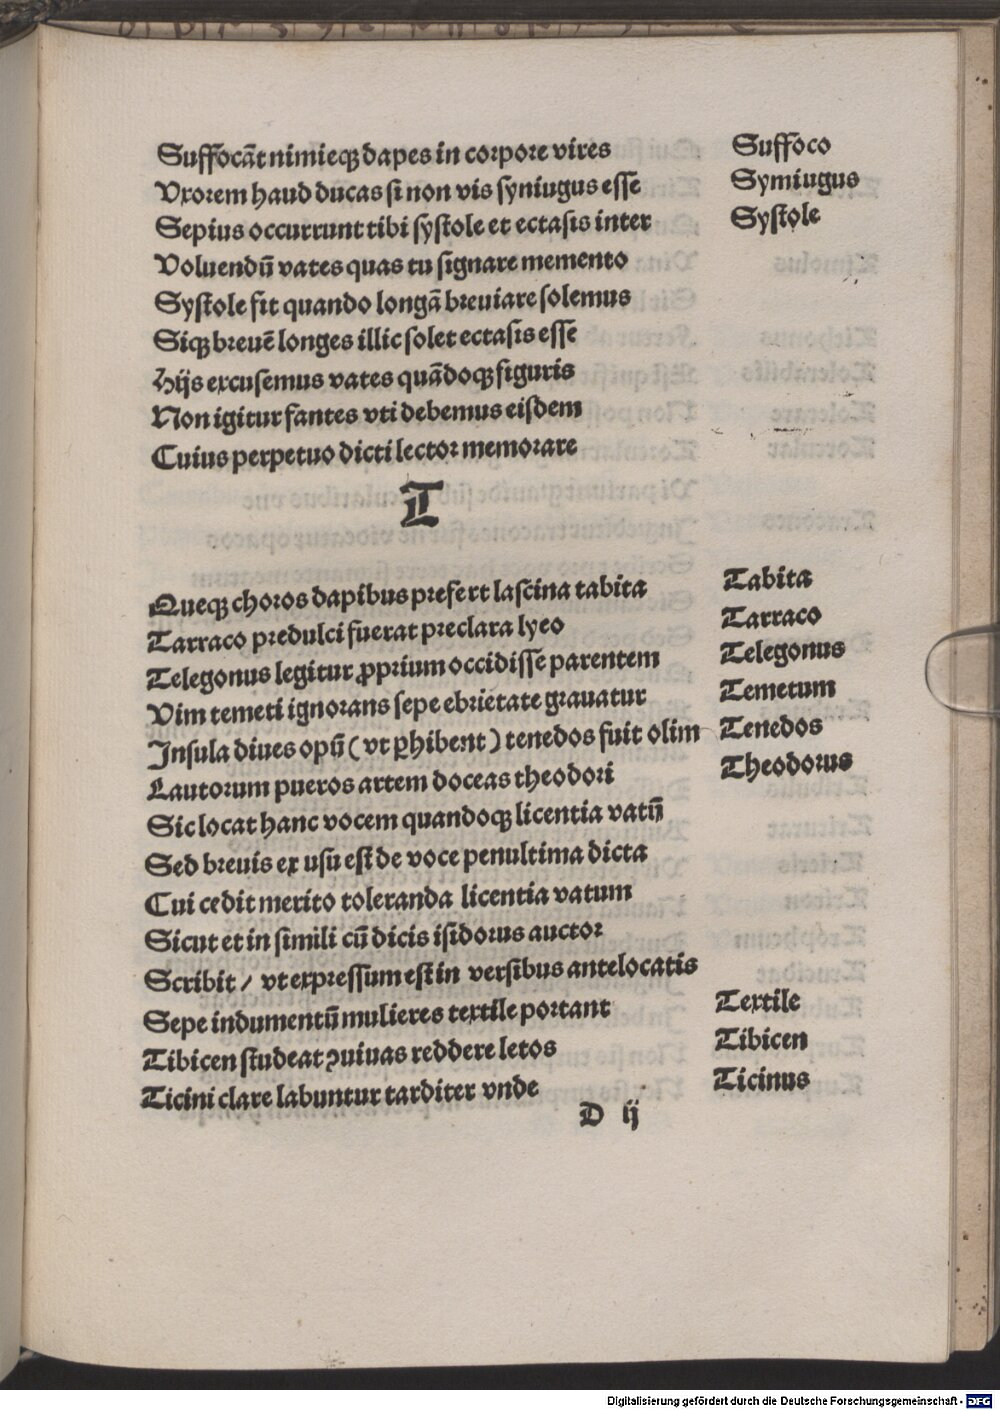 Suffocāt nimieqꝫ dapes in corpore vires Suffoco
Vxorem haud ducas si non vis syniugus esse Symiugus
Sepius occurrunt tibi systole et ectasis inter Systole
Voluendū vates quas tu signare memento
Systole fit quando longā breuiare solemus
Siqꝫ breuē longes illic solet ectasis esse
Hijs excusemus vates quādoqꝫ figuris
Non igitur fantes vti debemus eisdem
Cuius perpetuo dicti lector memorare
T
Queqꝫ choros dapibus prefert lascina tabita Tabita
Tarraco predulci fuerat preclara lyeo Tarraco
Telegonus legitur ꝓprium occidisse parentem Telegonus
Vim temeti ignorans sepe ebrietate grauatur Temetum
Insula diues opū (vt ꝑhibent) tenedos fuit olim Tenedos
Lautorum pueros artem doceas theodori Theodorus
Sic locat hanc vocem quandoqꝫ licentia vatū
Sed breuis ex usu est de voce penultima dicta
Cui cedit merito toleranda licentia vatum
Sicut et in simili cū dicis isidorus auctor
Scribit / vt expressum est in versibus antelocatis
Sepe indumentū mulieres textile portant Textile
Tibicen studeat ꝯuiuas reddere letos Tibicen
Ticini clare labuntur tarditer vnde Ticinus
D ij
Digitalisierung gefördert durch die Deutsche Forschungsgemeinschaft - DFG